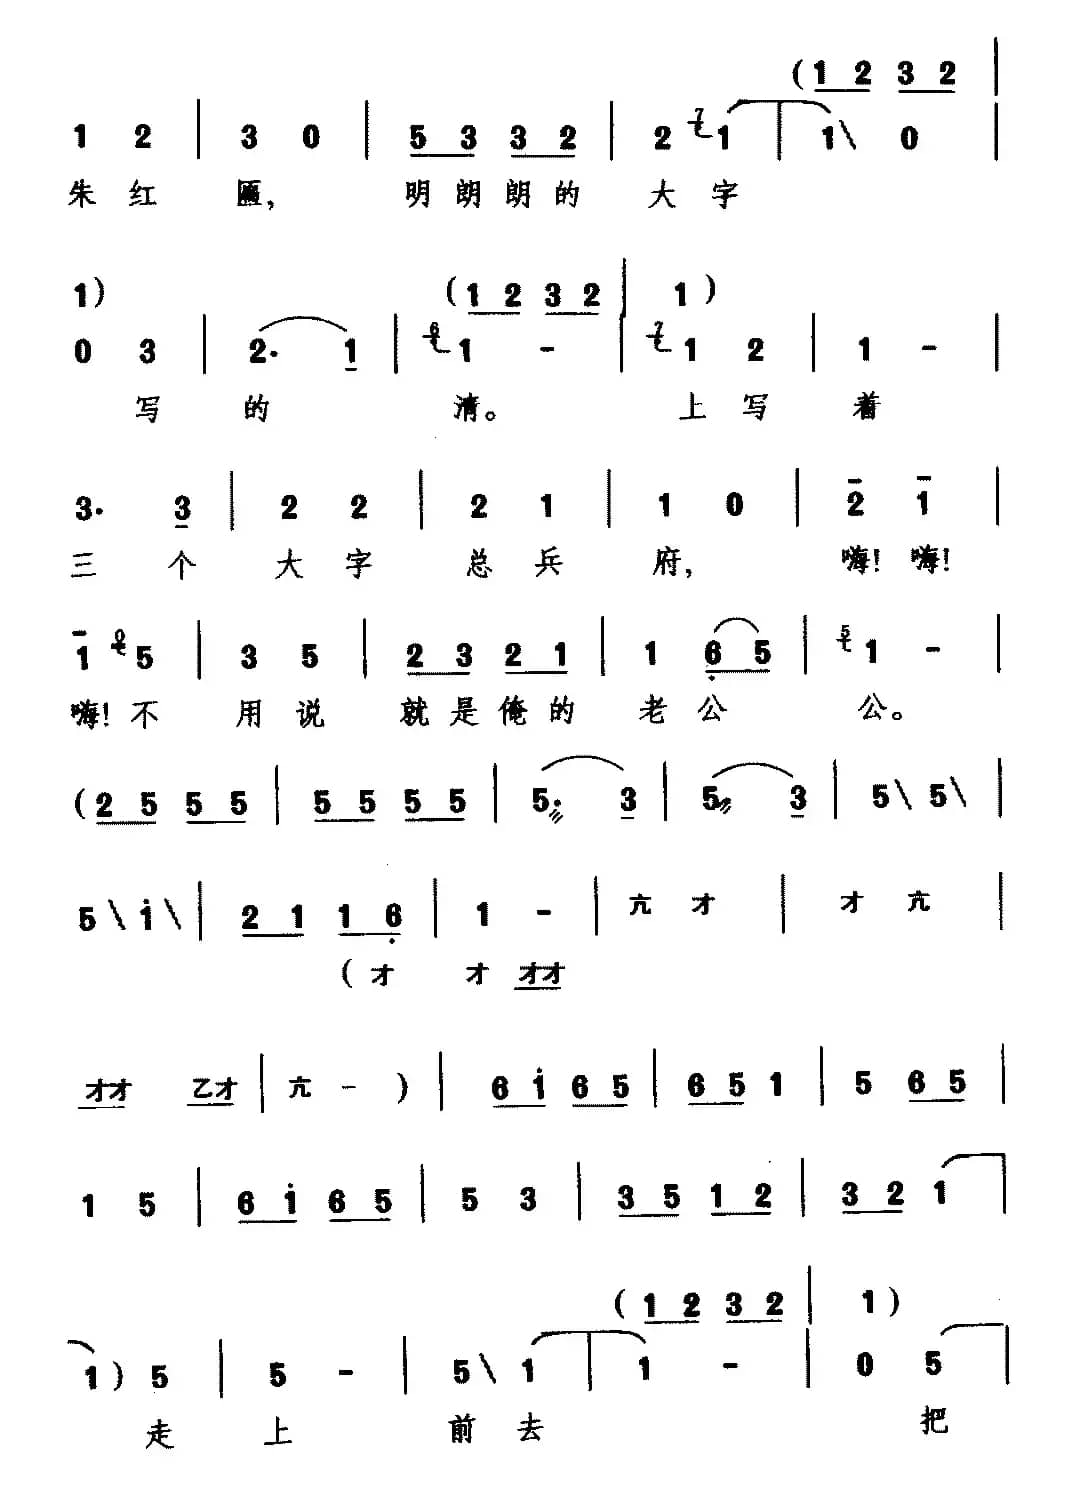 (1 2 3 2 |
1 2 | 3 0 | 5 3 3 2 | 2 7 1 | 1\ 0 |
朱 红 匾, 明 朗 朗 的 大 字
1) (1 2 3 2 | 1)
0 3 | 2· 1 | 6 1 - | 7 1 2 | 1 - |
写 的 清。 上 写 着
3· 3 | 2 2 | 2 1 | 1 0 | 2 1 |
三 个 大 字 总 兵 府, 嗨! 嗨!
1 0 5 | 3 5 | 2 3 2 1 | 1 6 5 | 5 1 - |
嗨! 不 用 说 就 是 俺 的 老 公 公。
(2 5 5 5 | 5 5 5 5 | 5· 3 | 5· 3 | 5\ 5\ |
5\ i\ | 2 1 1 6 | 1 - | 亢 才 | 才 亢 |
(才 才 才才
才才 乙才 | 亢 - ) | 6 i 6 5 | 6 5 1 | 5 6 5 |
1 5 | 6 i 6 5 | 5 3 | 3 5 1 2 | 3 2 1 |
(1 2 3 2 | 1)
1) 5 | 5 - | 5\ 1 | 1 - | 0 5 |
走 上 前 去 把